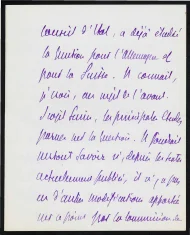 Conseil d'Etat, a déjà étudié
la question pour l'Allemagne et
pour la Suisse. Il connait,
je crois, au sujet de l'avant
Projet Suisse, les principales
sur la question. Il faudrait
surtout savoir si, depuis les textes
actuellement publiés, il n'y a pas
eu d'autres modifications apportées
par la commission de